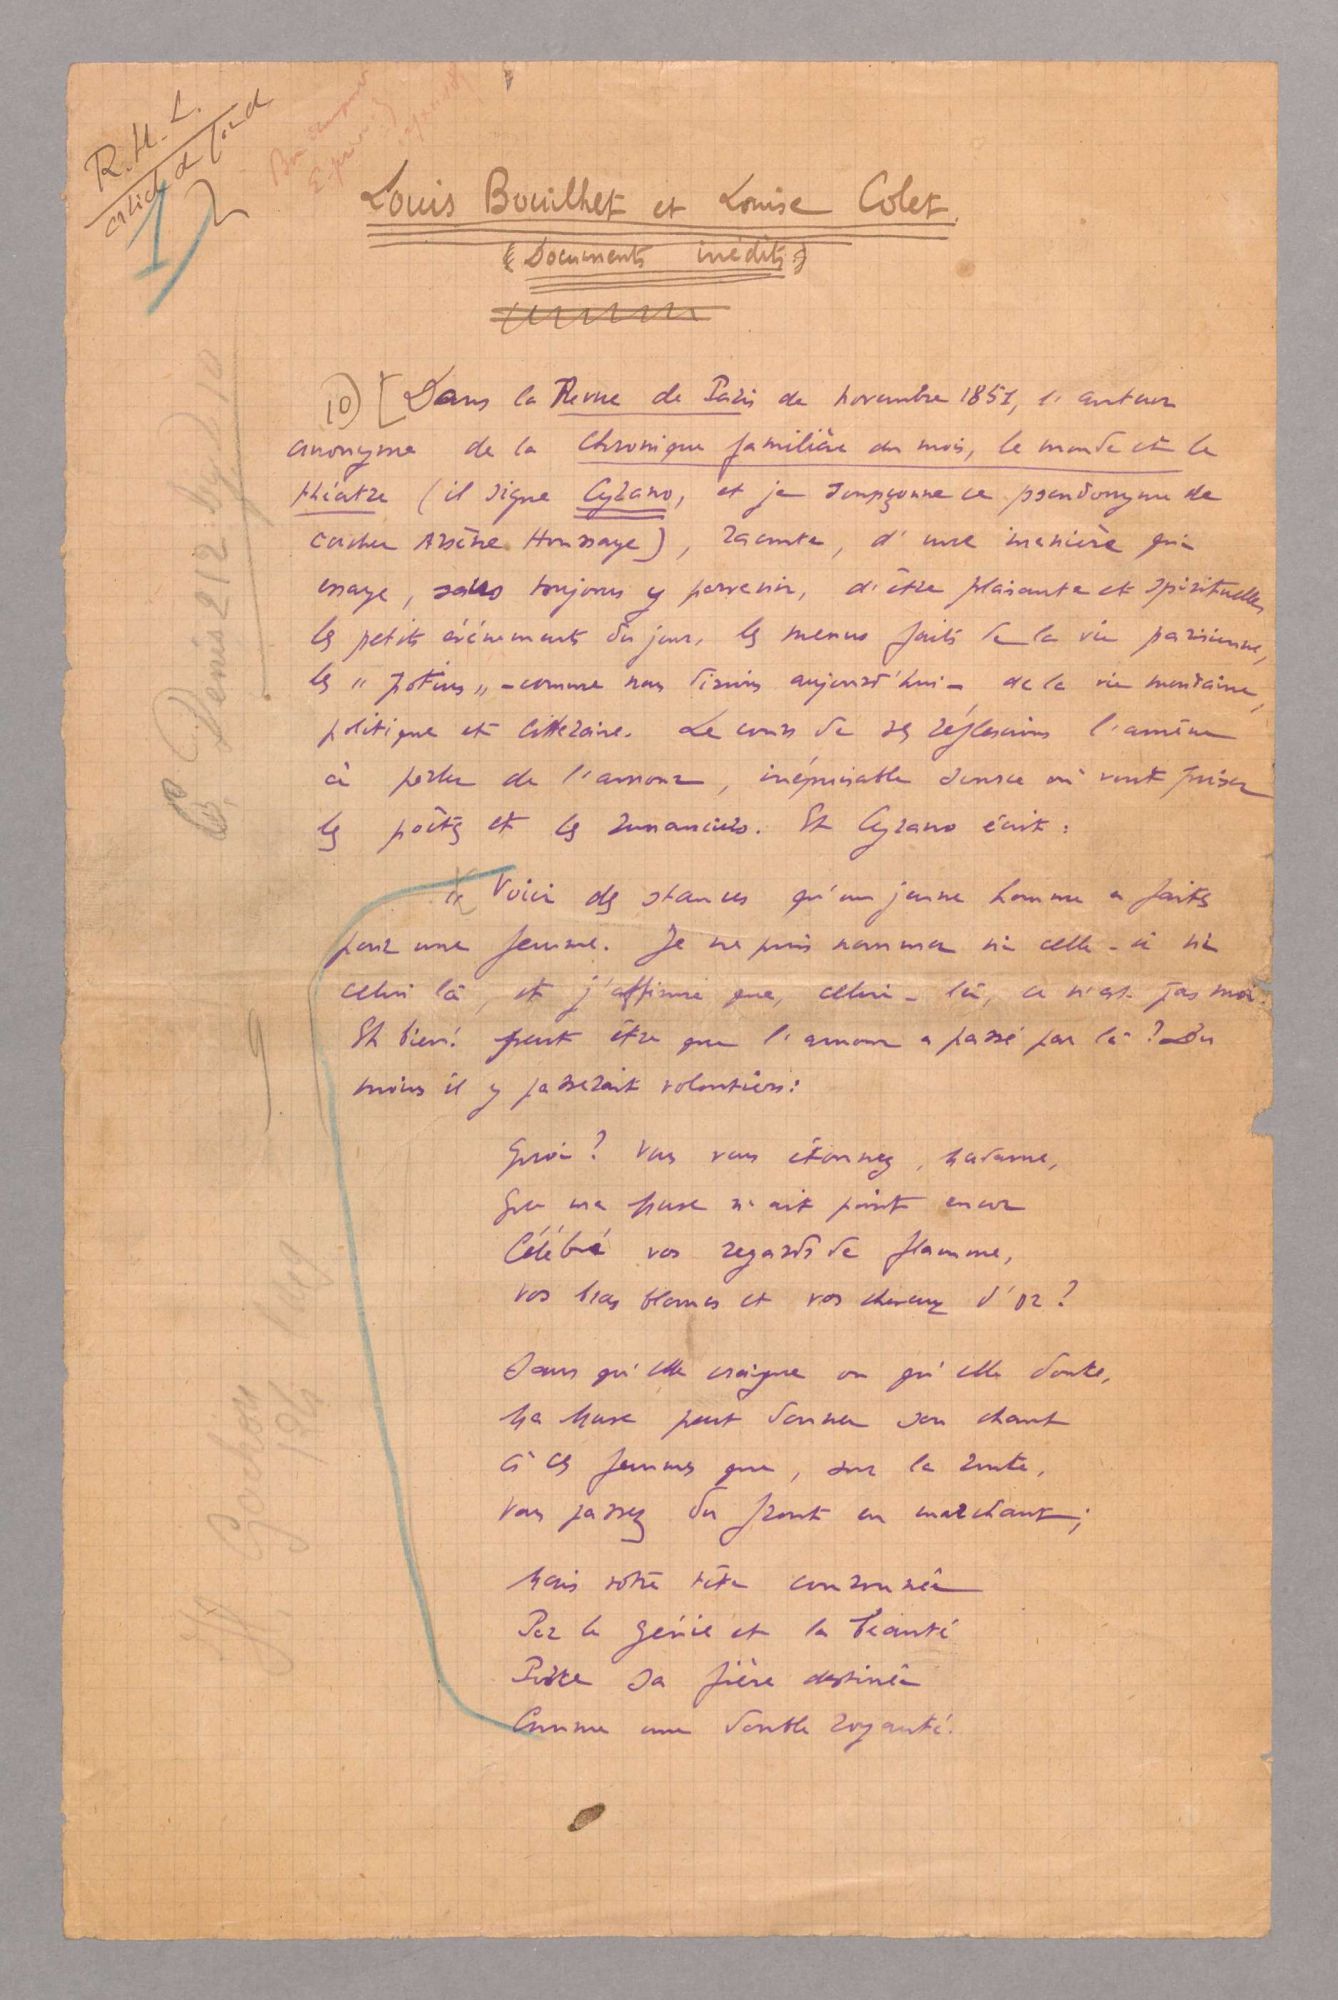 R.H.L.
article de fond
1
Louis Bouilhet et Louise Colet
(Documents inédits)
10) [Dans la Revue de Paris de novembre 1851, l'auteur
anonyme de la Chronique familière du mois, le monde et le
théatre (il signe Cyrano, et je soupçonne ce pseudonyme de
cacher Arsène Houssaye), raconte, d'une manière qui
essaye, sans toujours y parvenir, d'être plaisante et spirituelle,
les petits événements du jour, les menus faits de la vie parisienne,
les "potins" - comme nous disons aujourd'hui - de la vie mondaine,
politique et littéraire. Le cours de ses réflexions l'amène
à parler de l'amour, inépuisable source où vont puiser
les poètes et les romanciers. Et Cyrano écrit :
" Voici des stances qu'un jeune homme a faites
pour une femme. Je ne puis nommer ni celle-ci ni
celui là, et j'affirme que, celui-là, ce n'est pas moi.
Eh bien! peut être que l'amour a passé par là ? Du
moins il y passerait volontiers :
Quoi ? Vous vous étonnez, Madame,
Que ma Muse n'ait point encor
Célébré vos regards de flamme,
Vos bras blancs et vos cheveux d'or ?
Sans qu'elle craigne ou qu'elle doute,
Ma Muse peut donner son chant
à ces femmes que, sur la route,
Vous passez du front en marchant ;
Mais votre tête couronnée
Par le génie et la beauté
Porte sa fière destinée
Comme une double royauté.
Denis 212 lg. D. 10
H. Cochon